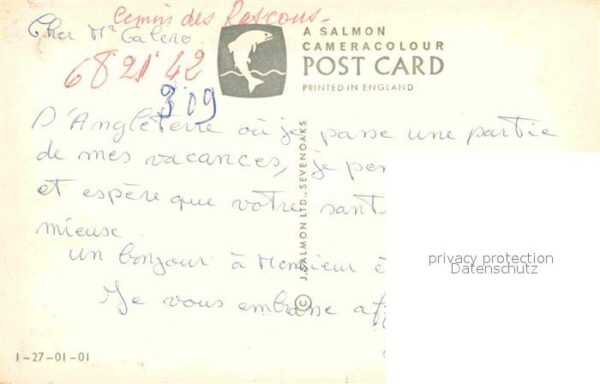 Cemin des Rascous.
Cher Mr Calero.
68 21 42
309
A SALMON
CAMERACOLOUR
POST CARD
PRINTED IN ENGLAND
D'Angleterre où je passe une partie
de mes vacances, je pen
et espère que votre sant
mieuse.
un bonjour à Monsieur
Je vous embrasse aff
© J. SALMON LTD., SEVENOAKS
privacy protection
Datenschutz
1-27-01-01